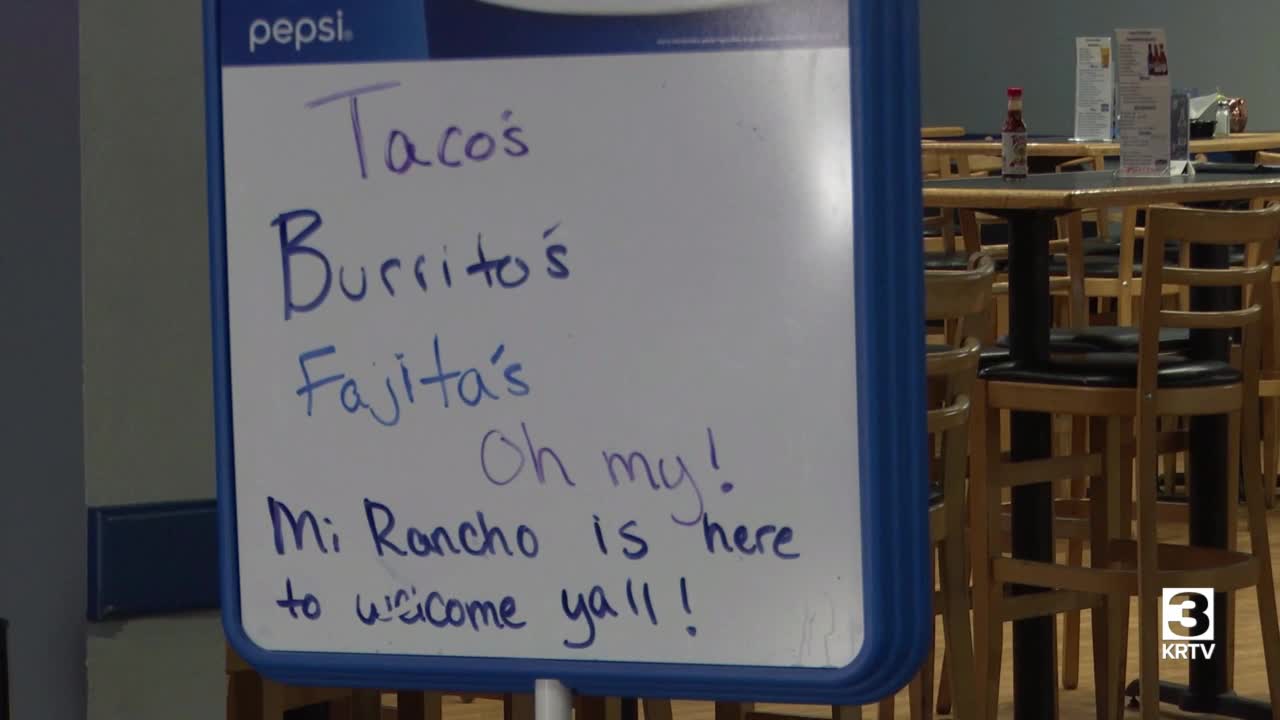 pepsi
Taco's
Burrito's
Fajita's
Oh my!
Mi Rancho is here
to welcome yall!
3
KRTV